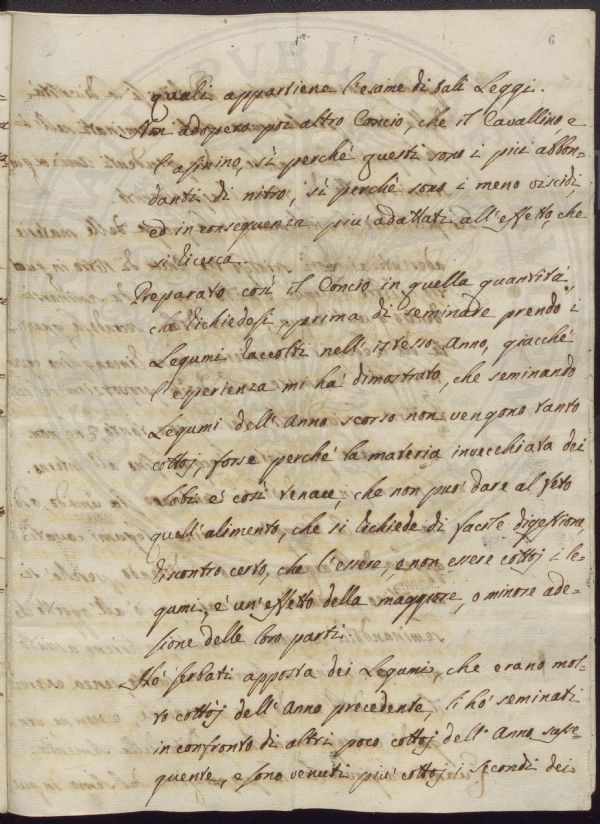 6
quali appartiene l'esame di tali Leggi.
Non adopero poi altro Concio, che il Cavallino, e
l'asinino, sì perchè questi sono i più abbon-
danti di nitro, sì perchè sono i meno viscidi,
ed in conseguenza più adattati all'effetto, che
si ricerca.
Preparato così il Concio in quella quantità,
che richiedesi, prima di seminare prendo i
Legumi raccolti nell'istesso Anno, giacchè
l'esperienza mi ha dimostrato, che seminando
Legumi dell'Anno scorso non vengono tanto
cottoj forse perchè la materia invecchiata dei
lobi è così tenace, che non può dare al feto
quell'alimento, che si richiede di facile digestione,
riscontro certo, che l'essere, o non essere cottoj i le-
gumi, è un'effetto della maggiore, o minore ade-
sione delle loro parti.
Hò serbati apposta dei Legumi, che erano mol-
to cottoj dell'Anno precedente, li hò seminati
in confronto di altri poco cottoj dell'Anno susse-
guente, e sono venuti più cottoj i secondi dei